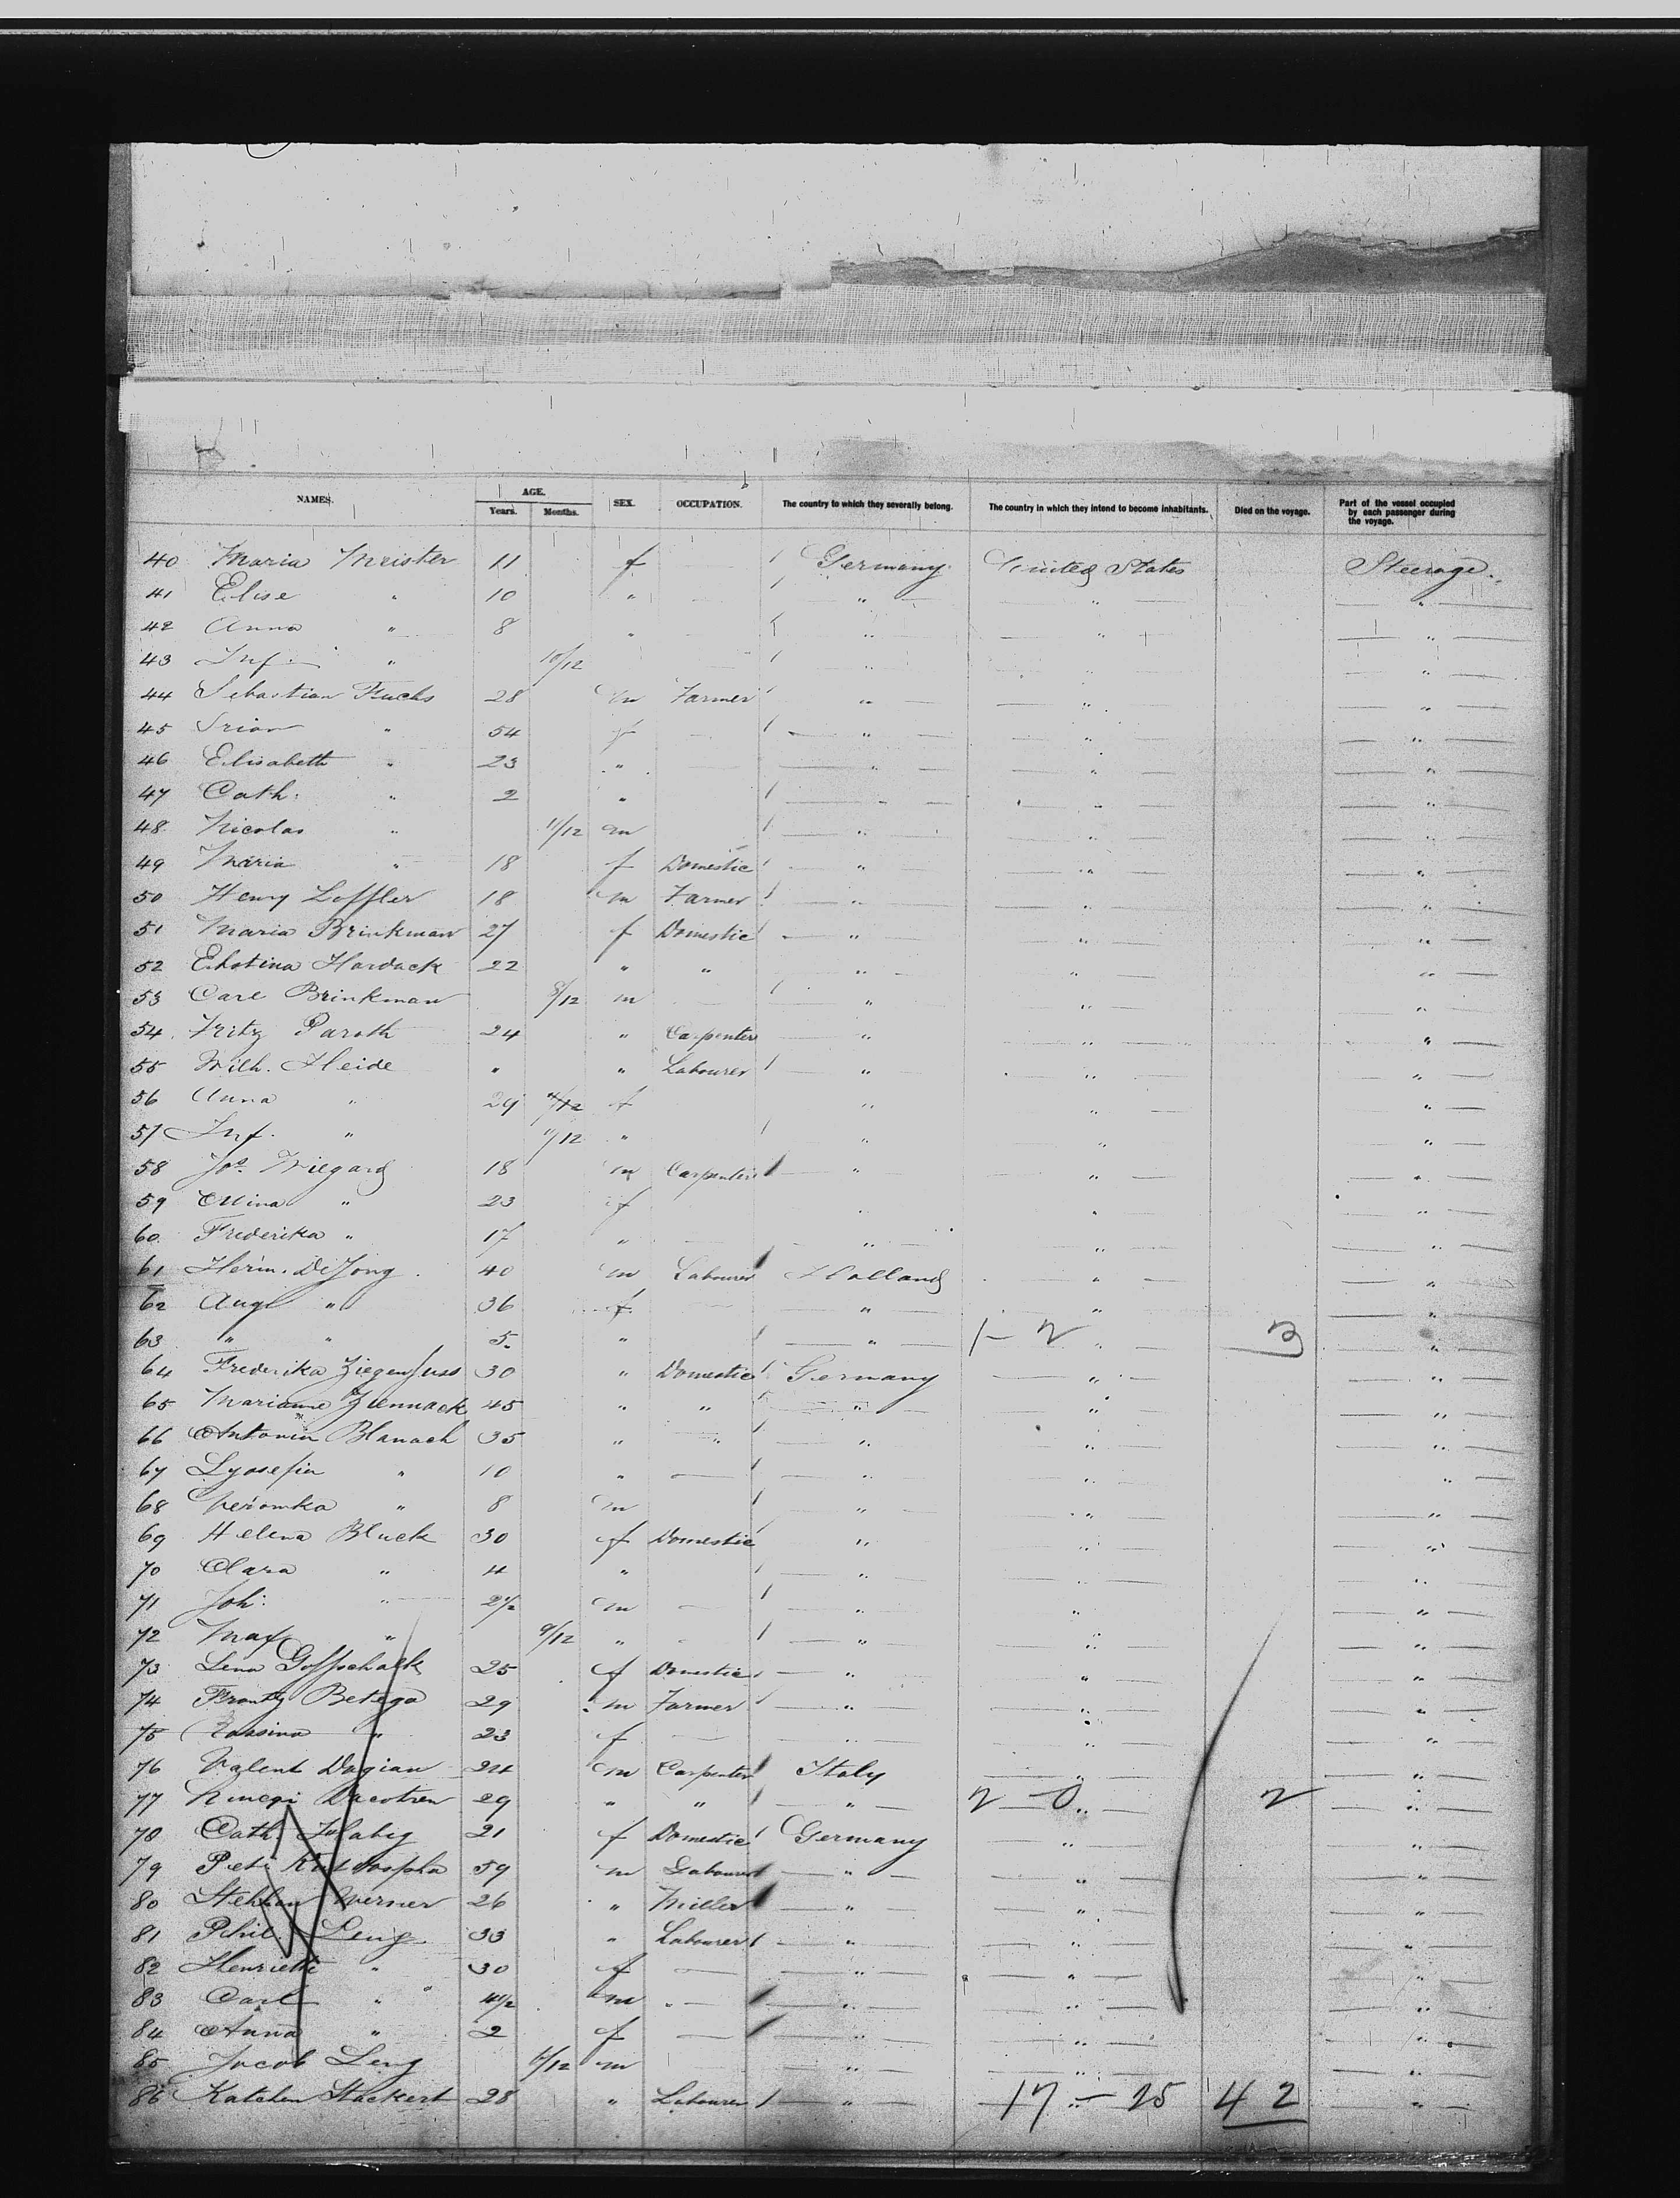 NAMES. AGE. Years. Months. SEX. OCCUPATION. The country to which they severally belong. The country in which they intend to become inhabitants. Died on the voyage. Part of the vessel occupied by each passenger during the voyage.
40 Maria Meister 11 f Germany United States Steerage.
41 Elise " 10 " " " "
42 Anna " 8 " " " "
43 Inf. " 10/12 " " "
44 Sebastian Fuchs 28 m Farmer " " "
45 " 54 f " " "
46 Elisabeth " 23 " " " "
47 Cath. " 2 " " " "
48 Nicolas " 11/12 m " " "
49 Maria " 18 f Domestic " " "
50 Henry Loffler 18 m Farmer " " "
51 Maria Brinkman 27 f Domestic " " "
52 Hardack 22 " " " " "
53 Carl Brinkman 8/12 m " " "
54 Fritz Paroth 24 " Carpenter " " "
55 Wilh. Heide " " Labourer " " "
56 Anna " 29 f " " "
57 Inf. " 11/12 " " " "
58 Jos. Wiegard 18 m Carpenter " " "
59 Mina " 23 f " " "
60 Frederika " 17 " " " "
61 Herm. De Jong 40 m Labourer Holland " "
62 Aug " 36 f " " "
63 " " 5 " " 1 - 2 " 3 "
64 Frederika Ziegenfuss 30 " Domestic Germany " "
65 Marianne Zennack 45 " " " " "
66 Antonin Blanach 35 " " " " "
67 " 10 " " " "
68 " 8 m " " "
69 Helena Bluck 30 f Domestic " " "
70 Clara " 4 " " " "
71 Joh. " 2 1/2 m " " "
72 Max " 9/12 " " " "
73 Lena Gottschalk 25 f Domestic " " "
74 Frantz Betega 29 m Farmer " " "
75 " 23 f " " "
76 Valent Dagian 24 m Carpenter Italy " "
77 29 " " " 2 - 0 " 2 "
78 Cath. 21 f Domestic Germany " "
79 59 m Labourer " " "
80 Werner 26 " Miller " " "
81 Phil. Leng 33 " Labourer " " "
82 Henriette " 30 f " " "
83 Carl " 4 1/2 m " " "
84 Anna " 2 f " " "
85 Jacob Leng 6/12 m " " "
86 Katchen Stackert 28 " Labourer " 17 - 25 42 "